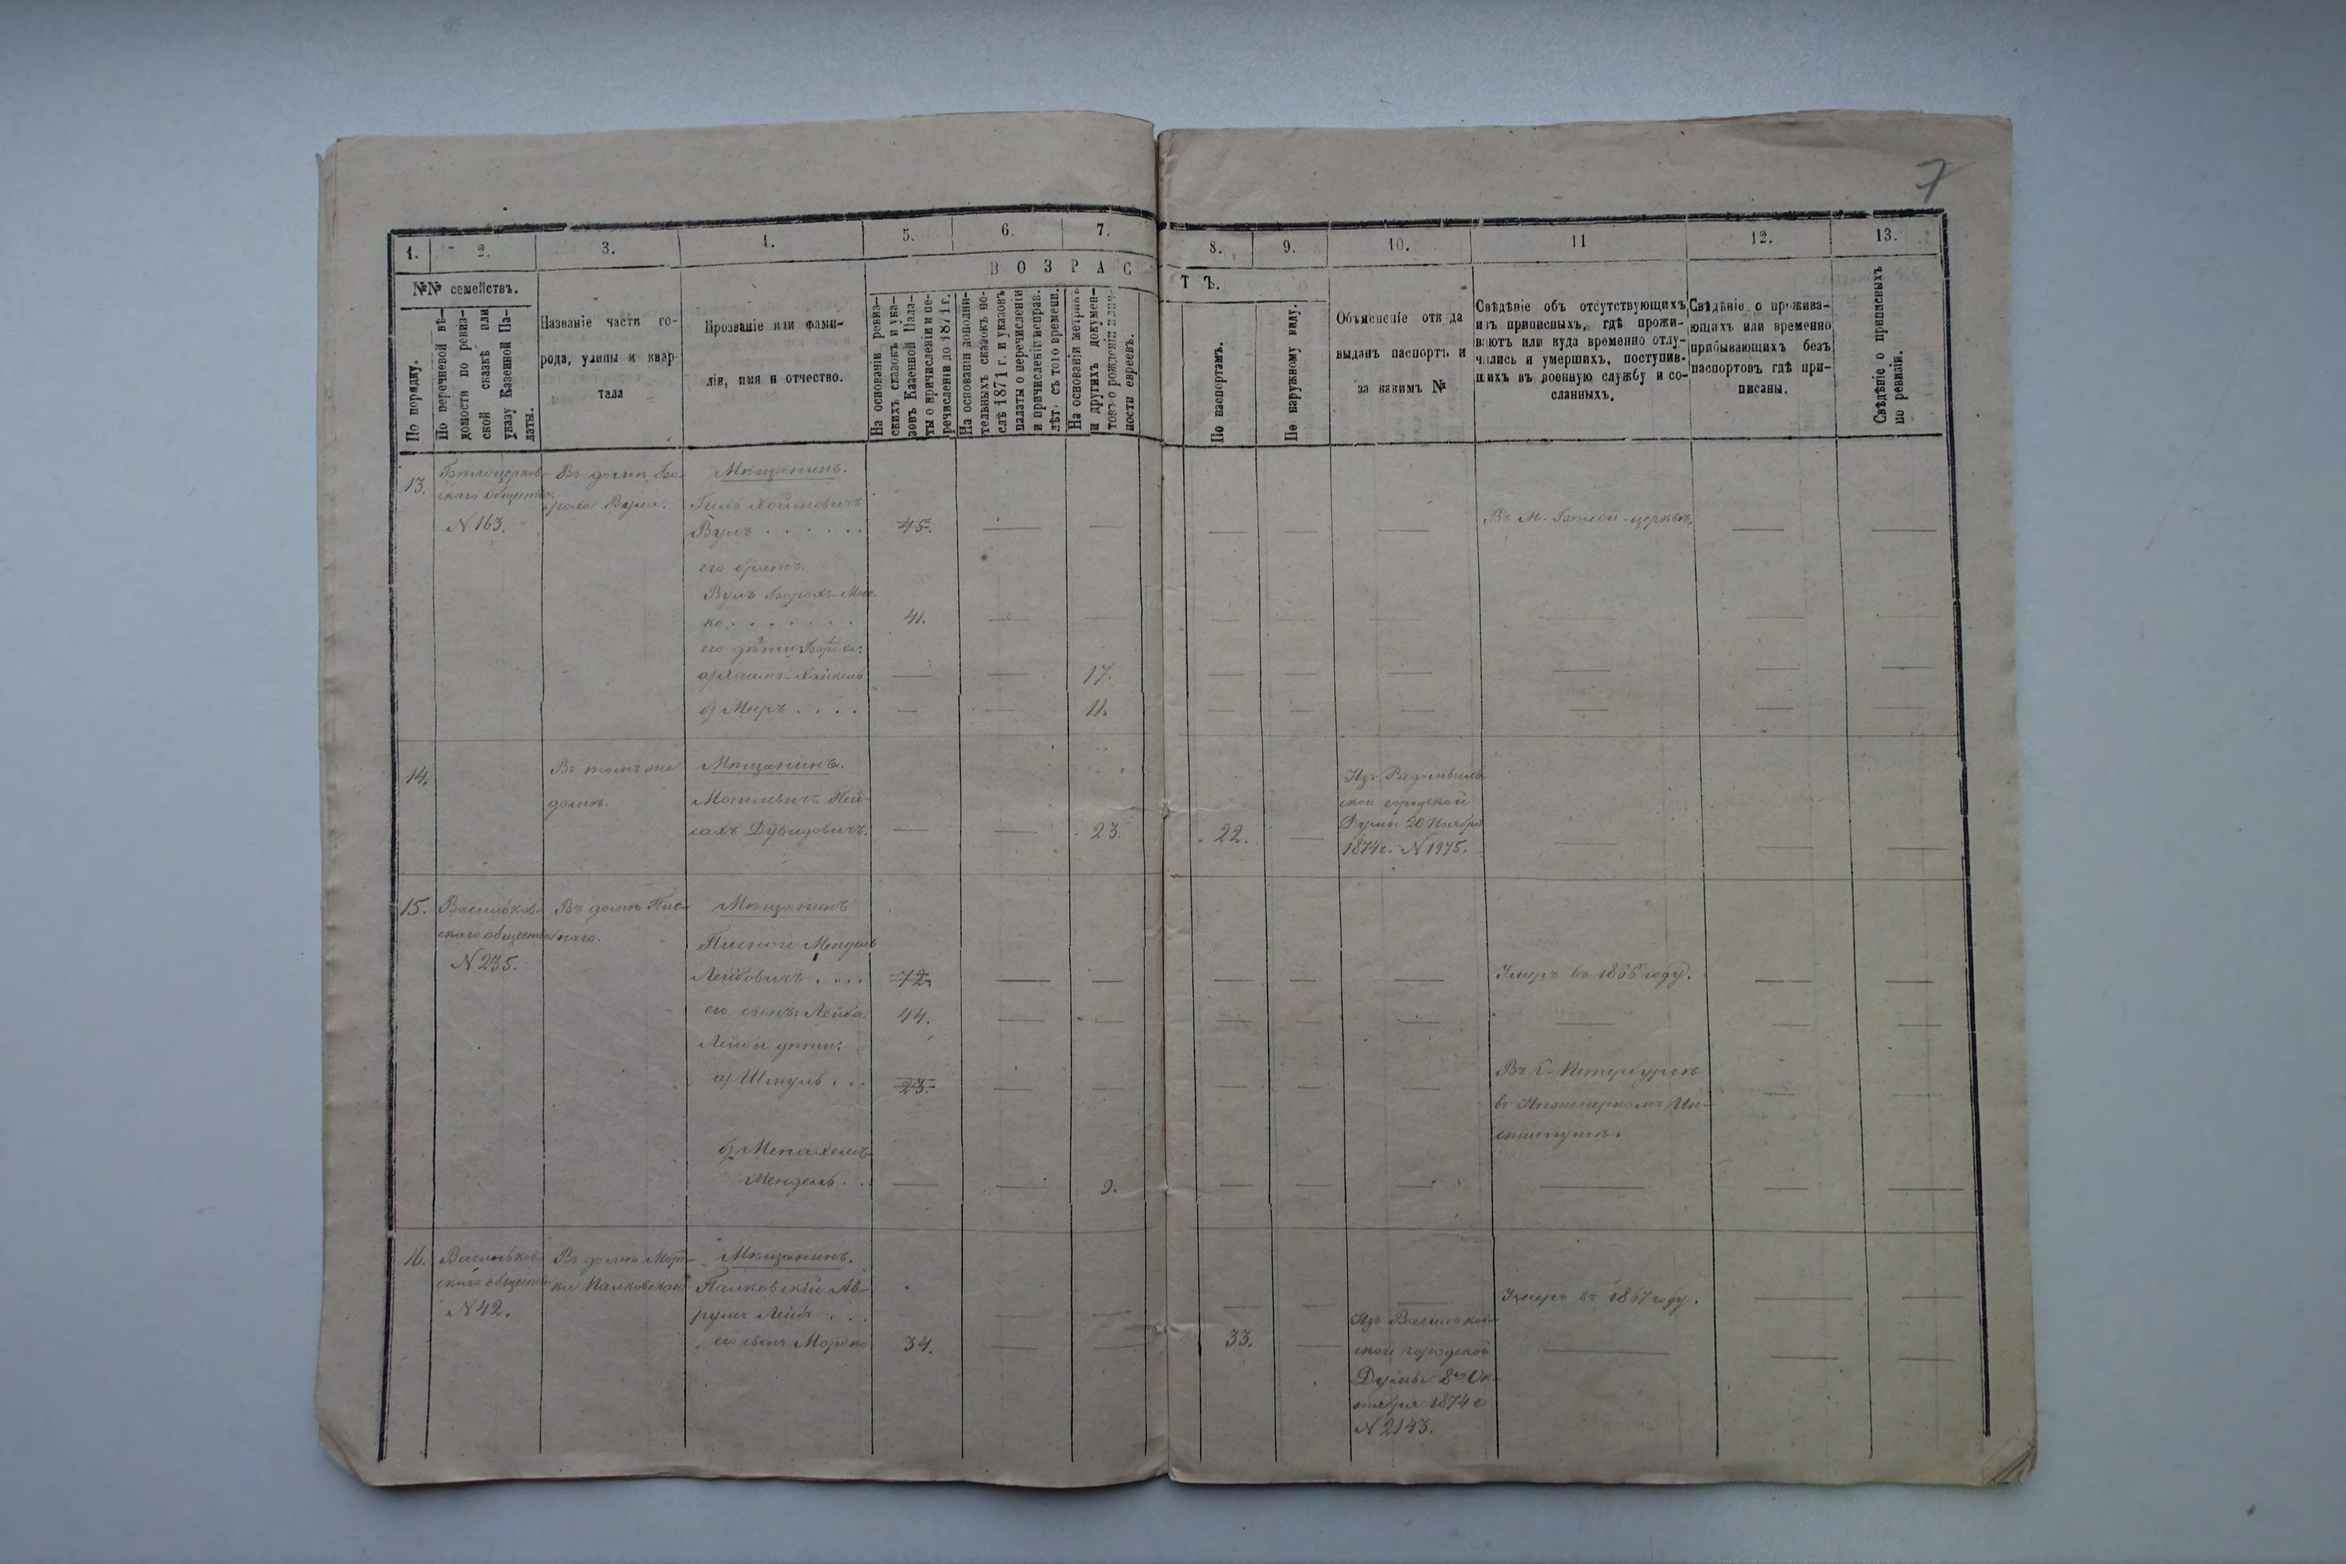 7
1.
2.
3.
4.
5.
6.
7.
8.
9.
10.
11
12.
13.
№№ семействъ.
ВОЗРАС
ТЪ.
По порядку.
По перечневой вѣ-
домости по ревиз-
ской сказкѣ или
указу Казенной Па-
латы.
Названіе части го-
рода, улицы и квар-
тала
Прозваніе или фами-
лія, имя и отчество.
На основаніи ревиз-
скихъ сказокъ и ука-
зовъ Казенной Пала-
ты о причисленіи и пе-
речисленіи до 1871 г.
На основаніи дополни-
тельныхъ сказокъ по-
слѣ 1871 г. и указовъ
палаты о перечисленіи
и причисленіи исправ.
лѣт. съ того времени.
На основаніи метрик.
и другихъ докумен-
товъ о рожденіи
ности евреевъ.
По паспортамъ.
По наружному виду.
Объясненіе отк да
выданъ паспортъ и
за какимъ №
Свѣдѣніе объ отсутствующихъ
изъ приписныхъ, гдѣ прожи-
ваютъ или куда временно отлу-
чились и умершихъ, поступив-
шихъ въ военную службу и со-
сланныхъ.
Свѣдѣніе о прожива-
ющихъ или временно
прибывающихъ безъ
паспортовъ гдѣ при-
писаны.
Свѣдѣніе о приписныхъ
по ревизіи.
13.
Бѣлоцерков-
скаго обществ.
N 163.
Въ домѣ Бо-
роха Вула.
Мѣщанинъ.
Гиль Хоимовичъ
Вулъ . . . . . .
45.
Въ М. Бѣлой-церквѣ.
его братъ.
Вулъ Борохъ-Мош-
ко . . . . . . .
41.
его дѣти Бороха:
а) Хаимъ-Хайкель
17.
б) Мееръ . . . .
11.
14.
Въ томъ же
домѣ.
Мѣщанинъ.
Могилевичъ Пей-
сахъ Дувидовичъ.
23.
22.
Изъ Радомысль-
ской городской
Думы 20 Ноября
1874 г. N 1975.
15.
Васильков-
скаго обществ
N 235.
Въ домѣ Пис-
наго.
Мѣщанинъ
Писной Мендель
Лейбовичъ . . . .
72.
Умеръ въ 1866 году.
его сынъ: Лейба
44.
Лейбы дѣти:
а) Шмуль . . .
23.
Въ С-Петербургѣ
въ Инженерномъ Ин-
ститутѣ.
б) Менахемъ-
Мендель . .
9.
16.
Васильков-
скаго обществ
N 42.
Въ домѣ Морд-
ки Палковскаго
Мѣщанинъ.
Палковскій Ав-
румъ Лейбъ . . .
Умеръ въ 1867 году.
его сынъ Мордко
34.
33.
Изъ Васильков-
ской городской
Думы 8го Ок-
тября 1874 г
N 2143.